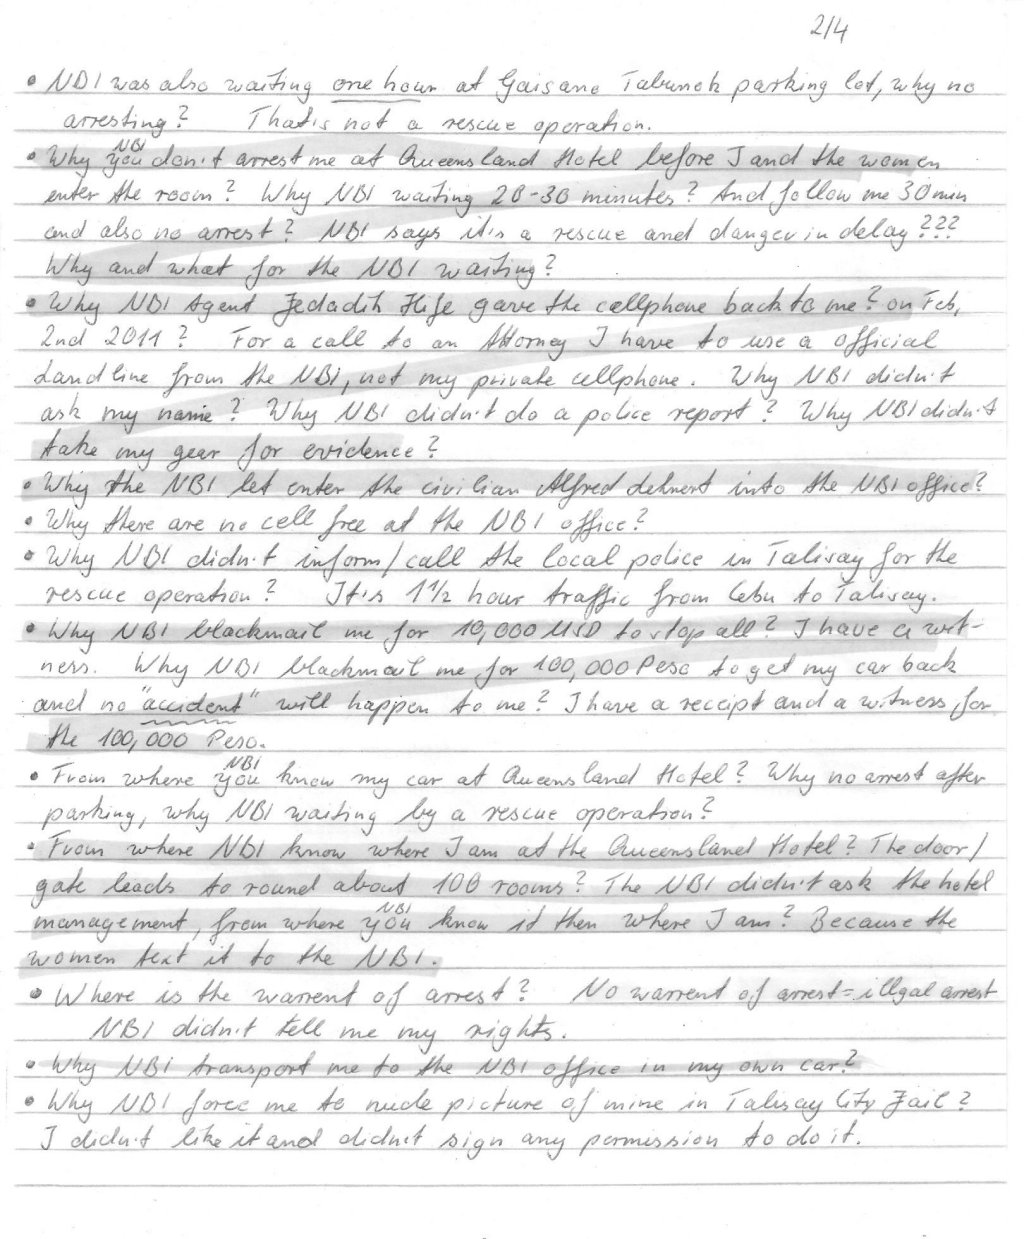 2/4
• NBI was also waiting one hour at Gaisano Tabunok parking lot, why no
arresting? That's not a rescue operation.
NBI
• Why you don't arrest me at Queensland Hotel before I and the women
enter the room? Why NBI waiting 20-30 minutes? And follow me 30 min
and also no arrest? NBI says it's a rescue and danger in delay???
Why and what for the NBI waiting?
• Why NBI Agent Jedadih Hife gave the cellphone back to me? on Feb,
2nd 2011? For a call to an Attorney I have to use a official
Landline from the NBI, not my private cellphone. Why NBI didn't
ask my name? Why NBI didn't do a police report? Why NBI didn't
take my gear for evidence?
• Why the NBI let enter the civilian Alfred dehnert into the NBI office?
• Why there are no cell free at the NBI office?
• Why NBI didn't inform/call the local police in Talisay for the
rescue operation? It's 1 1/2 hour traffic from Cebu to Talisay.
• Why NBI blackmail me for 10,000 USD to stop all? I have a wit-
ness. Why NBI blackmail me for 100,000 Peso to get my car back
and no "accident" will happen to me? I have a receipt and a witness, for
the 100,000 Peso.
NBI
• From where you know my car at Queensland Hotel? Why no arrest after
parking, why NBI waiting by a rescue operation?
• From where NBI know where I am at the Queensland Hotel? The door/
gate leads to round about 100 rooms? The NBI didn't ask the hotel
NBI
management, from where you know it then where I am? Because the
women text it to the NBI.
• Where is the warrent of arrest? No warrent of arrest = illgal arrest
NBI didn't tell me my rights.
• Why NBI transport me to the NBI office in my own car?
• Why NBI force me to nude picture of mine in Talisay City Jail?
I didn't like it and didn't sign any permission to do it.